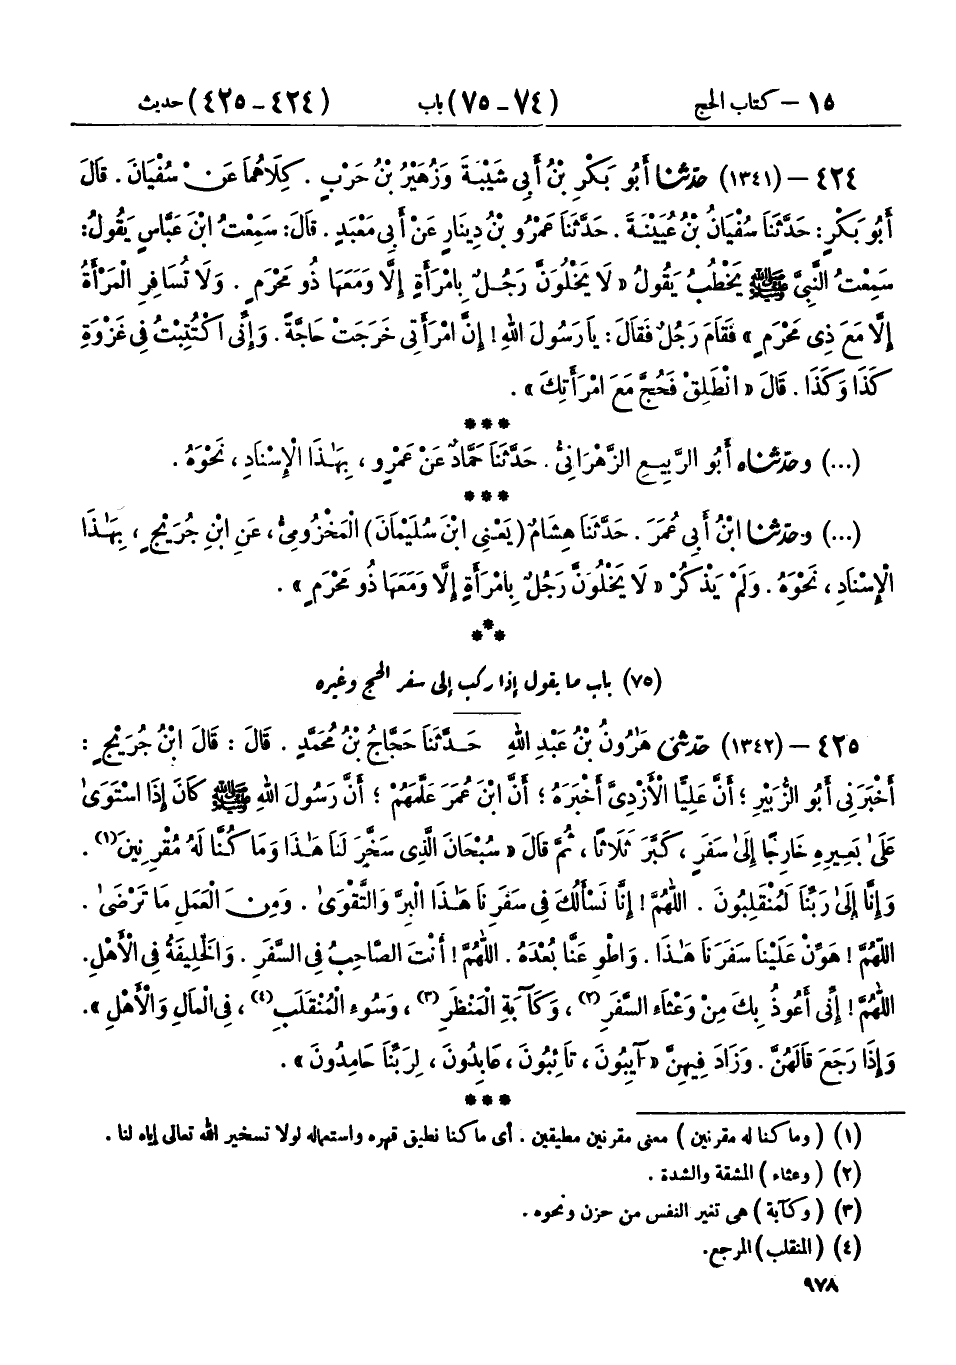 ١٥ – كتاب الحج (٧٤ – ٧٥) باب (٤٢٤ – ٤٢٥) حديث
٤٢٤ – (١٣٤١) حدثنا أَبُو بَكْرِ بْنُ أَبِي شَيْبَةَ وَزُهَيْرُ بْنُ حَرْبٍ . كِلَاهُمَا عَنْ سُفْيَانَ . قَالَ
أَبُو بَكْرٍ : حَدَّثَنَا سُفْيَانُ بْنُ عُيَيْنَةَ . حَدَّثَنَا عَمْرُو بْنُ دِينَارٍ عَنْ أَبِي مَعْبَدٍ . قَالَ : سَمِعْتُ ابْنَ عَبَّاسٍ يَقُولُ :
سَمِعْتُ النَّبِيَّ ﷺ يَخْطُبُ يَقُولُ « لَا يَخْلُوَنَّ رَجُلٌ بِامْرَأَةٍ إِلَّا وَمَعَهَا ذُو مَحْرَمٍ . وَلَا تُسَافِرِ الْمَرْأَةُ
إِلَّا مَعَ ذِي مَحْرَمٍ » فَقَامَ رَجُلٌ فَقَالَ : يَا رَسُولَ اللهِ ! إِنَّ امْرَأَتِي خَرَجَتْ حَاجَّةً . وَإِنِّي اكْتُتِبْتُ فِي غَزْوَةِ
كَذَا وَكَذَا . قَالَ « انْطَلِقْ فَحُجَّ مَعَ امْرَأَتِكَ » .
***
(...) وحدثناه أَبُو الرَّبِيعِ الزَّهْرَانِيُّ . حَدَّثَنَا حَمَّادٌ عَنْ عَمْرٍو ، بِهَٰذَا الْإِسْنَادِ ، نَحْوَهُ .
***
(...) وحدثنا ابْنُ أَبِي عُمَرَ . حَدَّثَنَا هِشَامٌ (يَعْنِي ابْنَ سُلَيْمَانَ) الْمَخْزُومِيُّ ، عَنِ ابْنِ جُرَيْجٍ ، بِهَٰذَا
الْإِسْنَادِ ، نَحْوَهُ . وَلَمْ يَذْكُرْ « لَا يَخْلُوَنَّ رَجُلٌ بِامْرَأَةٍ إِلَّا وَمَعَهَا ذُو مَحْرَمٍ » .
***
(٧٥) باب ما يقول إذا ركب إلى سفر الحج وغيره
٤٢٥ – (١٣٤٢) حدثني هَٰرُونُ بْنُ عَبْدِ اللهِ حَدَّثَنَا حَجَّاجُ بْنُ مُحَمَّدٍ . قَالَ : قَالَ ابْنُ جُرَيْجٍ :
أَخْبَرَنِي أَبُو الزُّبَيْرِ ؛ أَنَّ عَلِيًّا الْأَزْدِيَّ أَخْبَرَهُ ؛ أَنَّ ابْنَ عُمَرَ عَلَّمَهُمْ ؛ أَنَّ رَسُولَ اللهِ ﷺ كَانَ إِذَا اسْتَوَىٰ
عَلَىٰ بَعِيرِهِ خَارِجًا إِلَىٰ سَفَرٍ ، كَبَّرَ ثَلَاثًا ، ثُمَّ قَالَ « سُبْحَانَ الَّذِي سَخَّرَ لَنَا هَٰذَا وَمَا كُنَّا لَهُ مُقْرِنِينَ(١) .
وَإِنَّا إِلَىٰ رَبِّنَا لَمُنْقَلِبُونَ . اللَّهُمَّ ! إِنَّا نَسْأَلُكَ فِي سَفَرِنَا هَٰذَا الْبِرَّ وَالتَّقْوَىٰ . وَمِنَ الْعَمَلِ مَا تَرْضَىٰ .
اللَّهُمَّ ! هَوِّنْ عَلَيْنَا سَفَرَنَا هَٰذَا . وَاطْوِ عَنَّا بُعْدَهُ . اللَّهُمَّ ! أَنْتَ الصَّاحِبُ فِي السَّفَرِ . وَالْخَلِيفَةُ فِي الْأَهْلِ .
اللَّهُمَّ ! إِنِّي أَعُوذُ بِكَ مِنْ وَعْثَاءِ السَّفَرِ(٢) ، وَكَآبَةِ الْمَنْظَرِ(٣) ، وَسُوءِ الْمُنْقَلَبِ(٤) ، فِي الْمَالِ وَالْأَهْلِ » .
وَإِذَا رَجَعَ قَالَهُنَّ . وَزَادَ فِيهِنَّ « آيِبُونَ ، تَائِبُونَ ، عَابِدُونَ ، لِرَبِّنَا حَامِدُونَ » .
***
(١) ( وما كنا له مقرنين ) معنى مقرنين مطيقين . أى ما كنا نطيق قهره واستعماله لولا تسخير الله تعالى إياه لنا .
(٢) ( وعثاء ) المشقة والشدة .
(٣) ( وكآبة ) هى تغير النفس من حزن ونحوه .
(٤) ( المنقلب ) المرجع.
٩٧٨